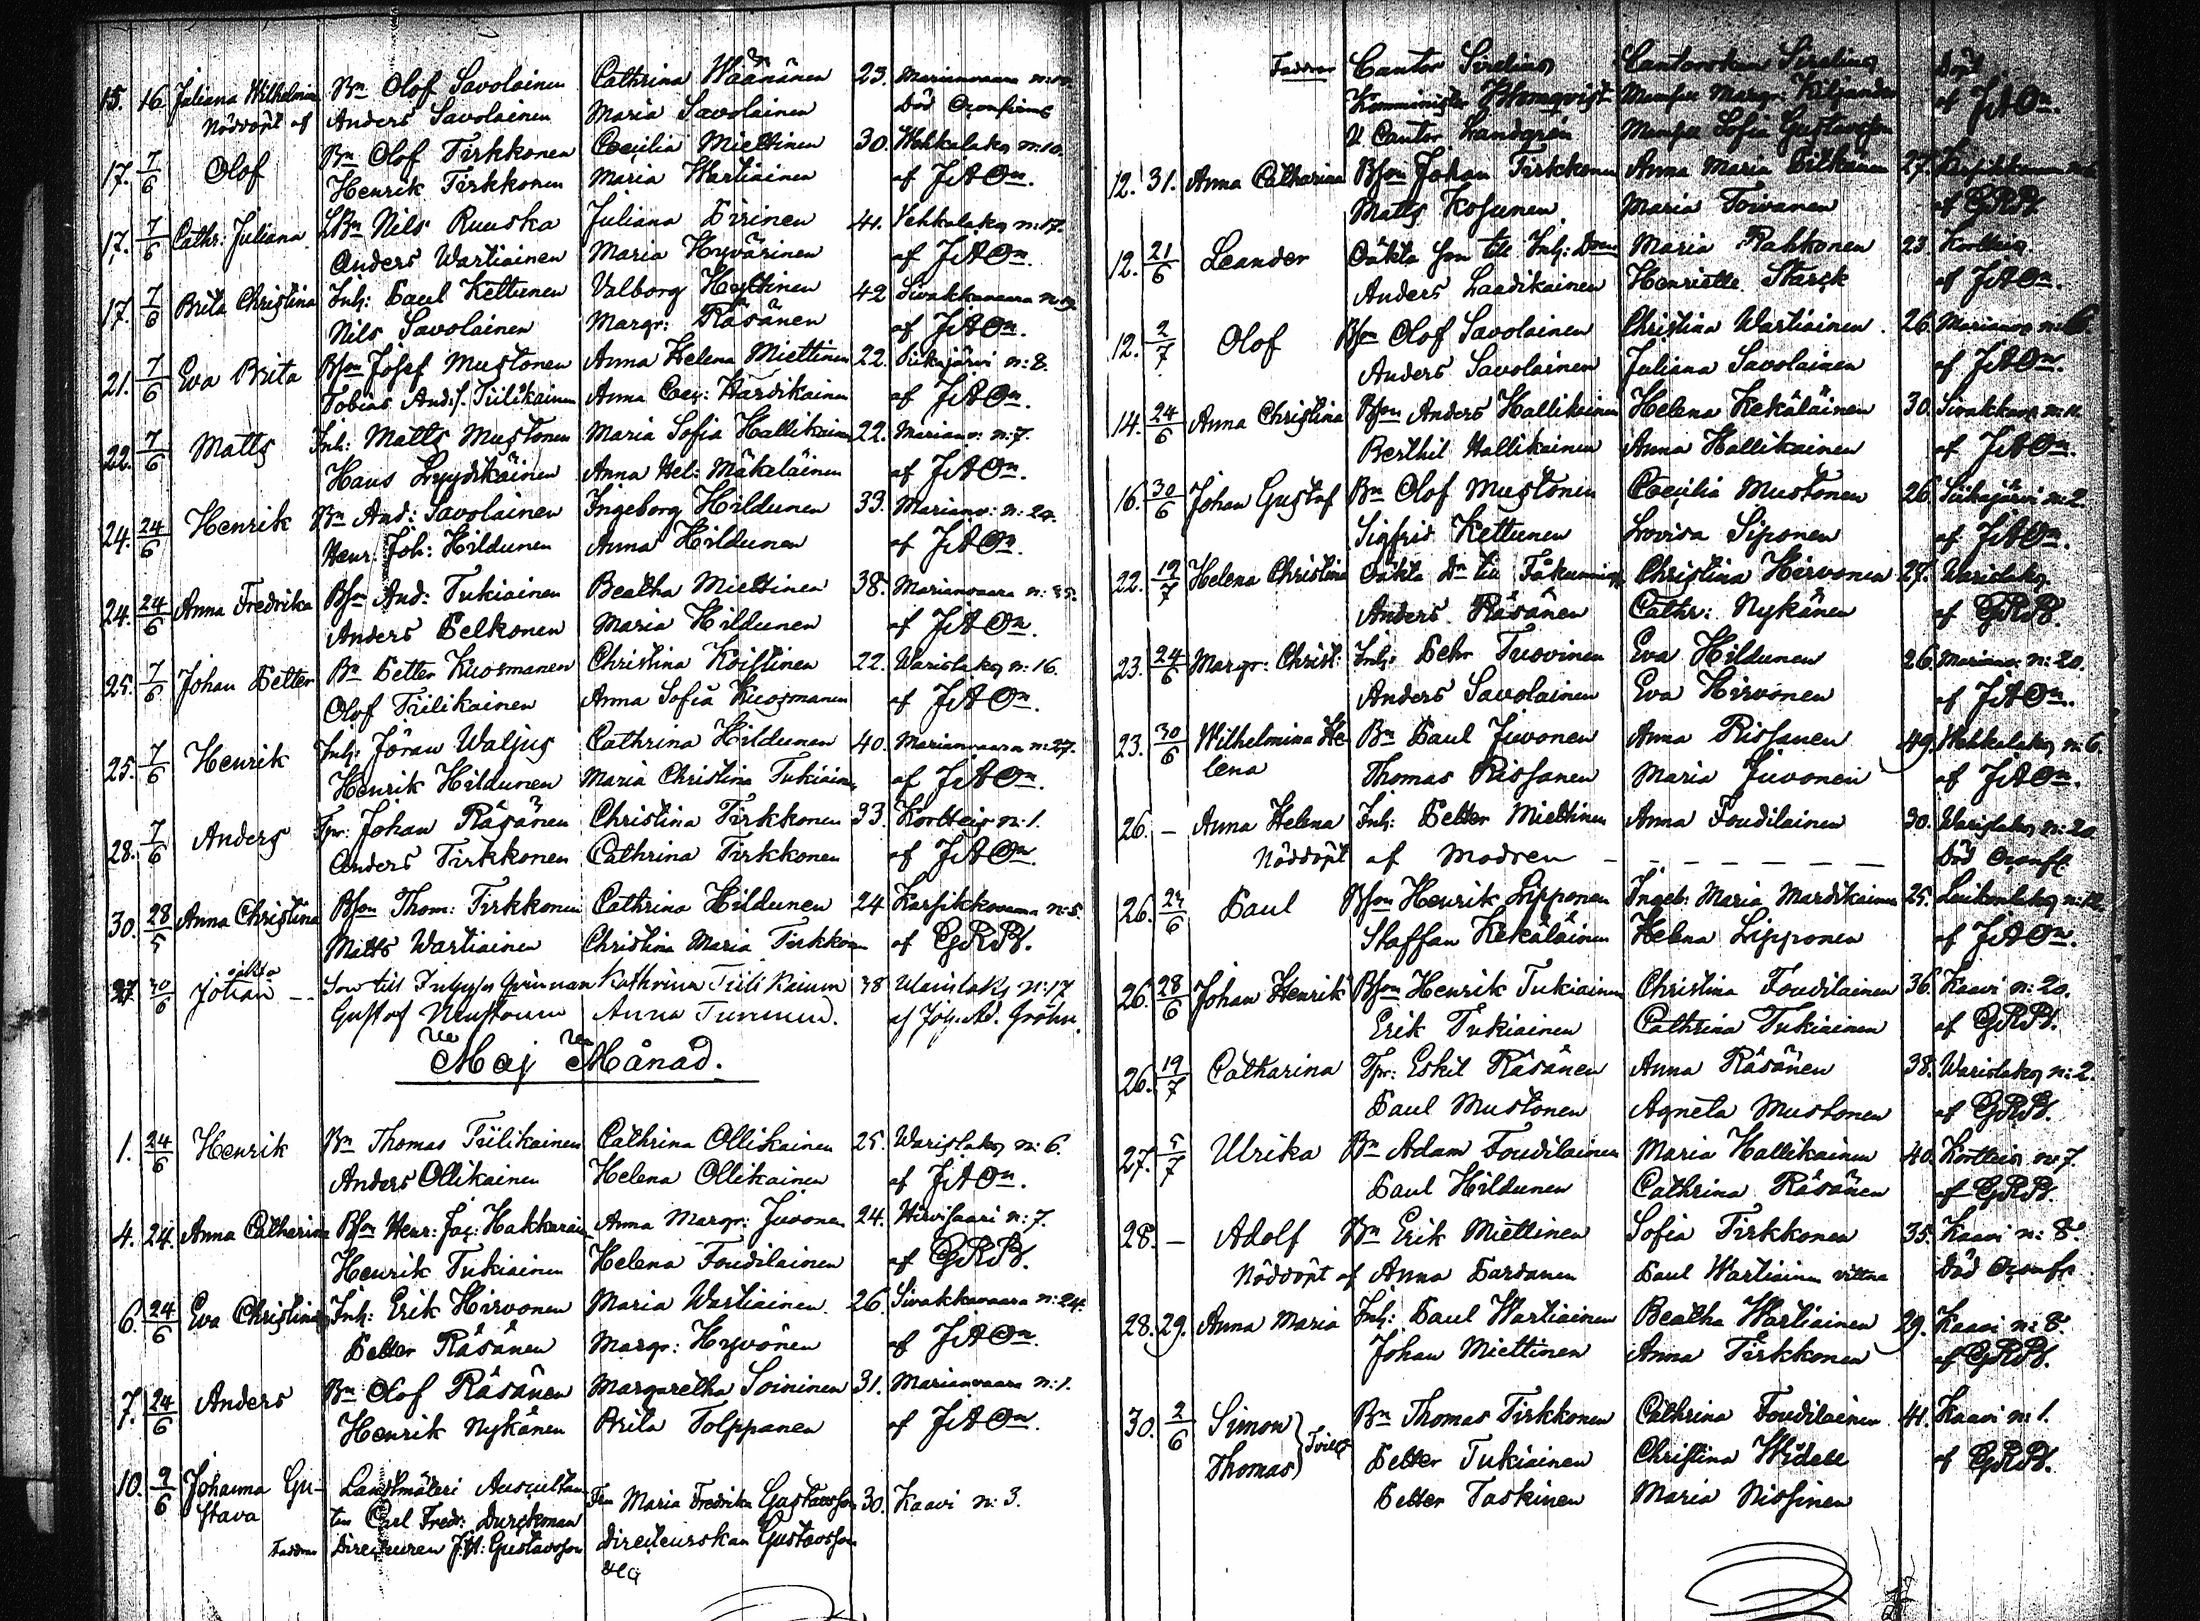 15. 16. Juliana Wilhelmina Bn Olof Savolainen Cathrina Wäänänen 23. Marianvaara
Nöddöpt af Anders Savolainen Maria Savolainen Död
17. 7/6 Olof Bn Olof Tirkkonen Cecilia Miettinen 30. Wehkalaks n: 10.
Henrik Tirkkonen Maria Wartiainen af JAOn.
17. 7/6 Cathr: Juliana LBn Nils Ruuska Juliana Pirinen 41. Vehkalaks n: 17.
Anders Wartiainen Maria Hyvärinen af JAOn.
17. 7/6 Brita Christina Inh: Paul Kettunen Valborg Hyttinen 42 Sivakkavaara
Nils Savolainen Margr: Räsänen af JAOn.
21. 7/6 Eva Brita Bson Josef Mustonen Anna Helena Miettinen 22. Siikajärvi n: 8.
Tobias Ands. Tiilikainen Anna Cec: af JAOn.
22. 7/6 Matts Inh: Matts Mustonen Maria Sofia Hallikainen 22. Marianv: n: 7.
Hans Lyydikäinen Anna Hel: Mäkeläinen af JAOn.
24. 24/6 Henrik Bn And: Savolainen Ingeborg Hildunen 33. Marianv: n: 24.
Henr: Joh: Hildunen Anna Hildunen af JAOn.
24. 24/6 Anna Fredrika Bson And: Tukiainen Beatha Miettinen 38. Marianvaara
Anders Pelkonen Maria Hildunen af JAOn.
25. 7/6 Johan Petter Bn Petter Kuosmanen Christina Koistinen 22. Warislaks n: 16.
Olof Tiilikainen Anna Sofia Kuosmanen af JAOn.
25. 7/6 Henrik Inh: Jöran Waljus Cathrina Hildunen 40. Marianvaara n: 27.
Henrik Hildunen Maria Christina Tukiain af JAOn.
28. 7/6 Anders Tpr: Johan Räsänen Christina Tirkkonen 33. Kortteis n: 1.
Anders Tirkkonen Cathrina Tirkkonen af JAOn.
30. 28/5 Anna Christina Bson Thom: Tirkkonen Cathrina Hildunen 24 Karsikkovaara n: 5.
Matts Wartiainen Christina Maria Tirkkon af GRPt.
27. 30/6 oäkta Johan -- Son till Inhyses Qvinnan Kathrina Tiilikainen 38 Warislaks n: 17
Gustaf Mustonen Anna Turunen. af Joh. Ad. Gröhn.
Maj Månad.
1. 24/6 Henrik Bn Thomas Tiilikainen Cathrina Ollikainen 25. Warislaks n: 6.
Anders Ollikainen Helena Ollikainen af JAOn.
4. 24. Anna Catharina Bson Henr: Jac: Hakkarain Anna Margr: Juvonen 24. Hirvisaari n: 7.
Henrik Tukiainen Helena Foudilainen af GRPt.
6. 24/6 Eva Christina Inh: Erik Hirvonen Maria Wartiainen. 26. Sivakkavaara n: 24.
Petter Räsänen Margr: Hyvönen af JAOn.
7. 24/6 Anders Bn Olof Räsänen Margaretha Soininen 31. Marianvaara n: 1.
Henrik Nykänen Brita Tolppanen af JAOn.
10. 2/6 Johanna Gu- Landtmäteri Auscultan Fru Maria Fredrika Gustavsson 30. Kaavi n: 3.
stava ten Carl Fredr: Durchman
Faddrar Directeuren J.A: Gustavsson Directeurskan Gustavsson
Faddrar Cantor Sirelius Cantorskan Sirelius Döpt
Komminister Mamsell Margr: Kiljander af JAOn.
V. Cantor Landgren Mamsell Sofia Gustavsson
12. 31. Anna Catharina Bson Johan Tirkkonen Anna Maria 27.
Matts Kosunen Maria Toivanen af GRPt.
12. 21/6 Leander Oäkta son till Inh: Maria Rahkonen 23. Kortteis.
Anders Laadikainen Henriette Starck af JAOn.
12. 2/7 Olof Bson Olof Savolainen Christina Wartiainen. 26. Marianv: n: 6
Anders Savolainen Juliana Savolainen af JAOn.
14. 24/6 Anna Christina Bson Anders Hallikainen Helena Kekäläinen 30. Sivakkav
Berthil Hallikainen Anna Hallikainen af JAOn.
16. 30/6 Johan Gustaf Bn Olof Mustonen Cecilia Mustonen 26. Siikajärvi n: 2.
Sigfrid Kettunen Lovisa Siponen af JAOn.
22. 19/7 Helena Christina Oäkta Dr till Christina Hirvonen 27. Warislaks.
Anders Räsänen Cathr: Nykänen af GRPt.
23. 24/6 Margr: Christ: Inh: Pehr Tuovinen Eva Hildunen 26. Marianv: n: 20.
Anders Savolainen Eva Hirvonen af JAOn.
23. 30/6 Wilhelmina He- Bn Paul Juvonen Anna Rissanen 49. Wehkalaks n: 6.
lena Thomas Rissanen Maria Juvonen af JAOn.
26. – Anna Helena Inh: Petter Miettinen Anna Foudilainen 30. Warislaks n: 20
Nöddöpt af Modren – – – – – – Död
26. Paul Bson Henrik Lipponen Ingeb: Maria Mardikainen 25.
Staffan Kekäläinen Helena Lipponen af JAOn.
26. 28/6 Johan Henrik Bson Henrik Tukiainen Christina Foudilainen 36. Kaavi n: 20.
Erik Tukiainen Cathrina Tukiainen af GRPt.
26. 19/7 Catharina Tpr: Eskil Räsänen Anna Räsänen 38. Warislaks n: 2.
Paul Mustonen Agneta Mustonen af GRPt.
27. 5/7 Ulrika Bn Adam Foudilainen Maria Hallikainen 40. Kortteis n: 7.
Paul Hildunen Cathrina Räsänen af GRPt.
28. – Adolf Bn Erik Miettinen Sofia Tirkkonen 35. Kaavi n: 8.
Nöddöpt af Anna Pardanen Paul Wartiainen vittna Död
28. 29. Anna Maria Inh: Paul Wartiainen Beatha Wartiainen 29. Kaavi n: 8.
Johan Miettinen Anna Tirkkonen af GRPt.
30. 2/6 Simon Bn Thomas Tirkkonen Cathrina Foudilainen 41. Kaavi n: 1.
Thomas Petter Tukiainen Christina Widell af GRPt.
Petter Taskinen Maria Nissinen